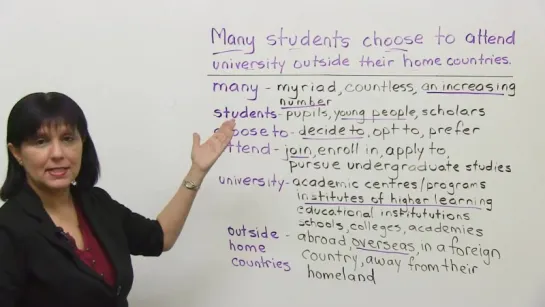 Many students choose to attend
university outside their home countries.
many - myriad, countless, an increasing
number
students - pupils, young people, scholars
choose to - decide to, opt to, prefer
attend - join, enroll in, apply to,
pursue undergraduate studies
university - academic centres/programs
institutes of higher learning
educational institutions
schools, colleges, academies
outside - abroad, overseas, in a foreign
home country, away from their
countries homeland